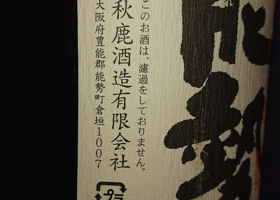 能勢
このお酒は、濾過をしておりません。
秋鹿酒造有限会社
大阪府豊能郡能勢町倉垣1007